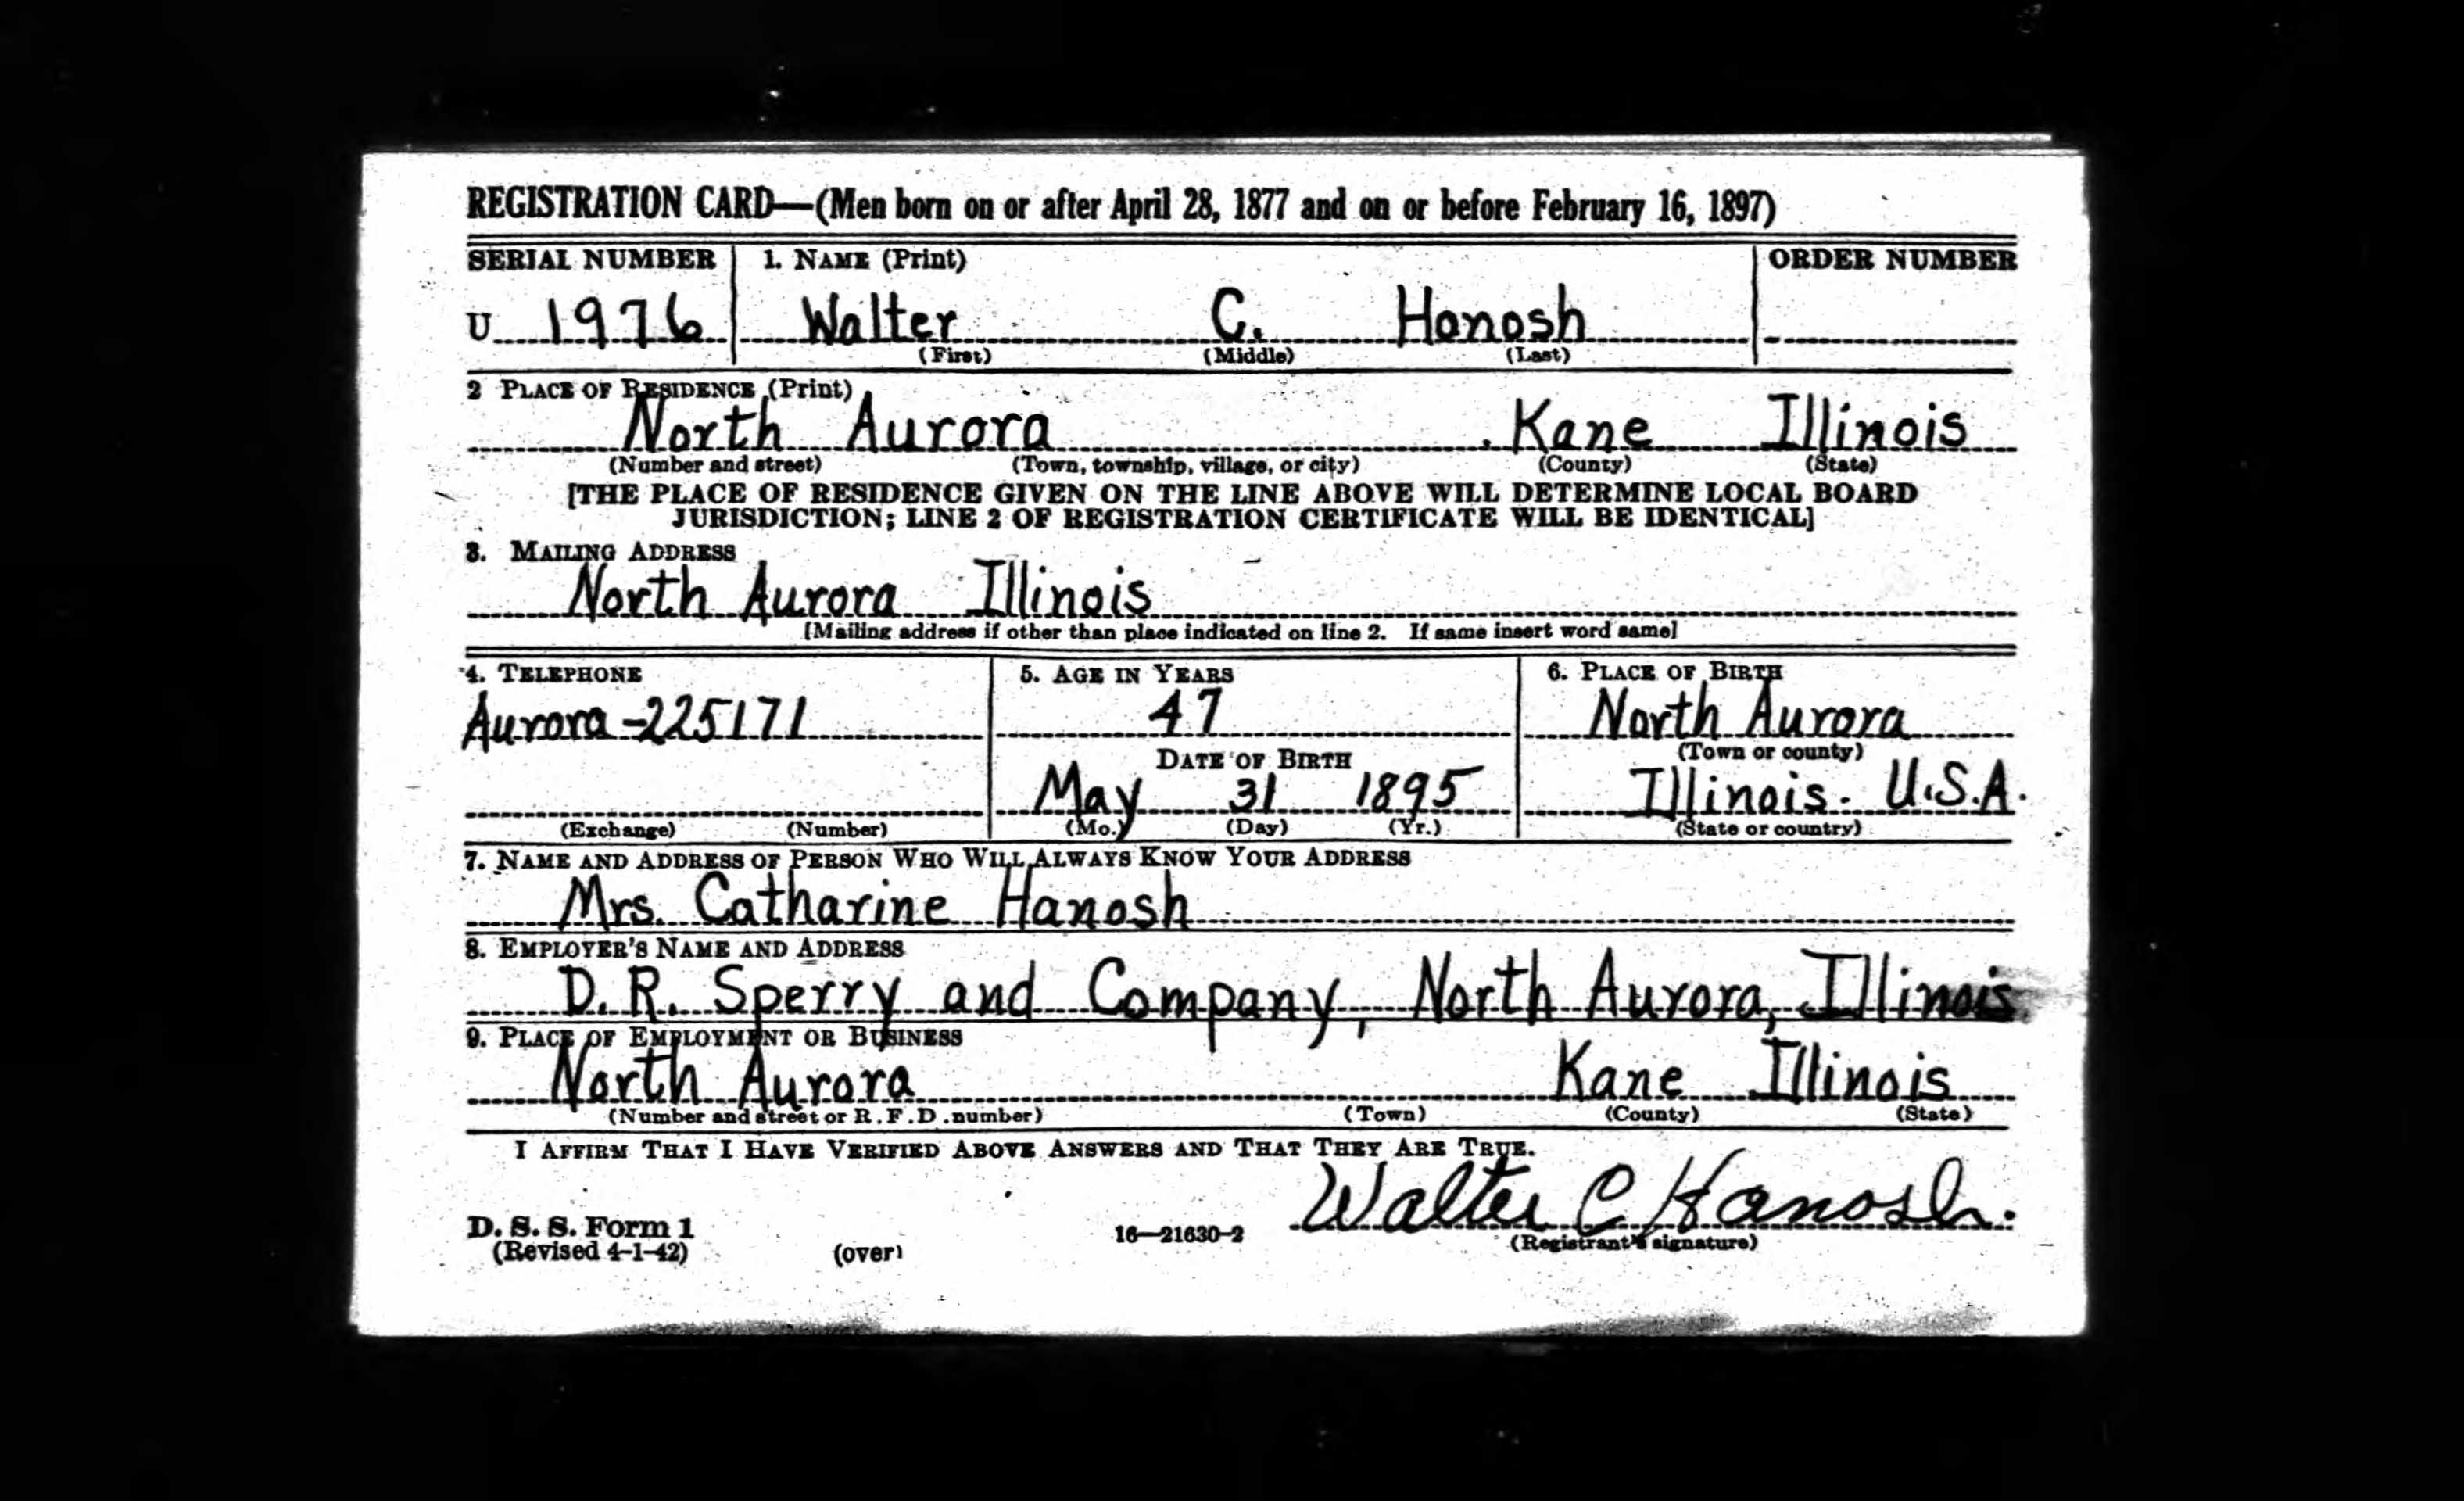 REGISTRATION CARD—(Men born on or after April 28, 1877 and on or before February 16, 1897)
SERIAL NUMBER 1. NAME (Print) ORDER NUMBER
U 1976 Walter C. Hanosh
(First) (Middle) (Last)
2 PLACE OF RESIDENCE (Print)
North Aurora Kane Illinois
(Number and street) (Town, township, village, or city) (County) (State)
[THE PLACE OF RESIDENCE GIVEN ON THE LINE ABOVE WILL DETERMINE LOCAL BOARD
JURISDICTION; LINE 2 OF REGISTRATION CERTIFICATE WILL BE IDENTICAL]
3. MAILING ADDRESS
North Aurora Illinois
[Mailing address if other than place indicated on line 2. If same insert word same]
4. TELEPHONE 5. AGE IN YEARS 6. PLACE OF BIRTH
Aurora-225171 47 North Aurora
DATE OF BIRTH (Town or county)
May 31 1895 Illinois. U.S.A.
(Exchange) (Number) (Mo.) (Day) (Yr.) (State or country)
7. NAME AND ADDRESS OF PERSON WHO WILL ALWAYS KNOW YOUR ADDRESS
Mrs. Catharine Hanosh
8. EMPLOYER'S NAME AND ADDRESS
D.R. Sperry and Company, North Aurora, Illinois
9. PLACE OF EMPLOYMENT OR BUSINESS
North Aurora Kane Illinois
(Number and street or R.F.D. number) (Town) (County) (State)
I AFFIRM THAT I HAVE VERIFIED ABOVE ANSWERS AND THAT THEY ARE TRUE.
Walter C Hanosh.
D. S. S. Form 1
(Revised 4-1-42) (over) 16—21630-2 (Registrant's signature)